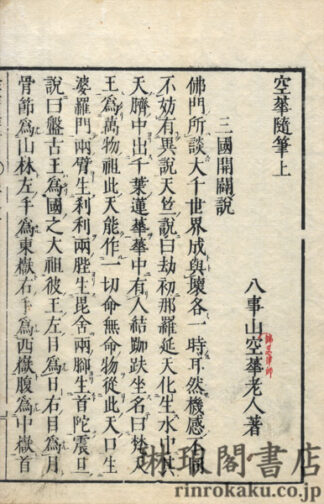 空華隨筆上
八事山空華老人著
諦忍律師
三國開闢說
佛門所談大千世界成與壞各一時耳然機感不同
不妨有異說天竺說曰劫初那羅延天化生水中其
天臍中出千葉蓮華華中有人結跏趺坐名曰梵天
王爲萬物祖此天能作一切命無命物從此天口生
婆羅門兩臂生刹利兩䏶生毘舍兩脚生首陀震旦
說曰盤古王爲國之大祖彼王左目爲日右目爲月
骨節爲山林左手爲東嶽右手爲西嶽腹爲中嶽首
琳琅閣書店
rinrokaku.com